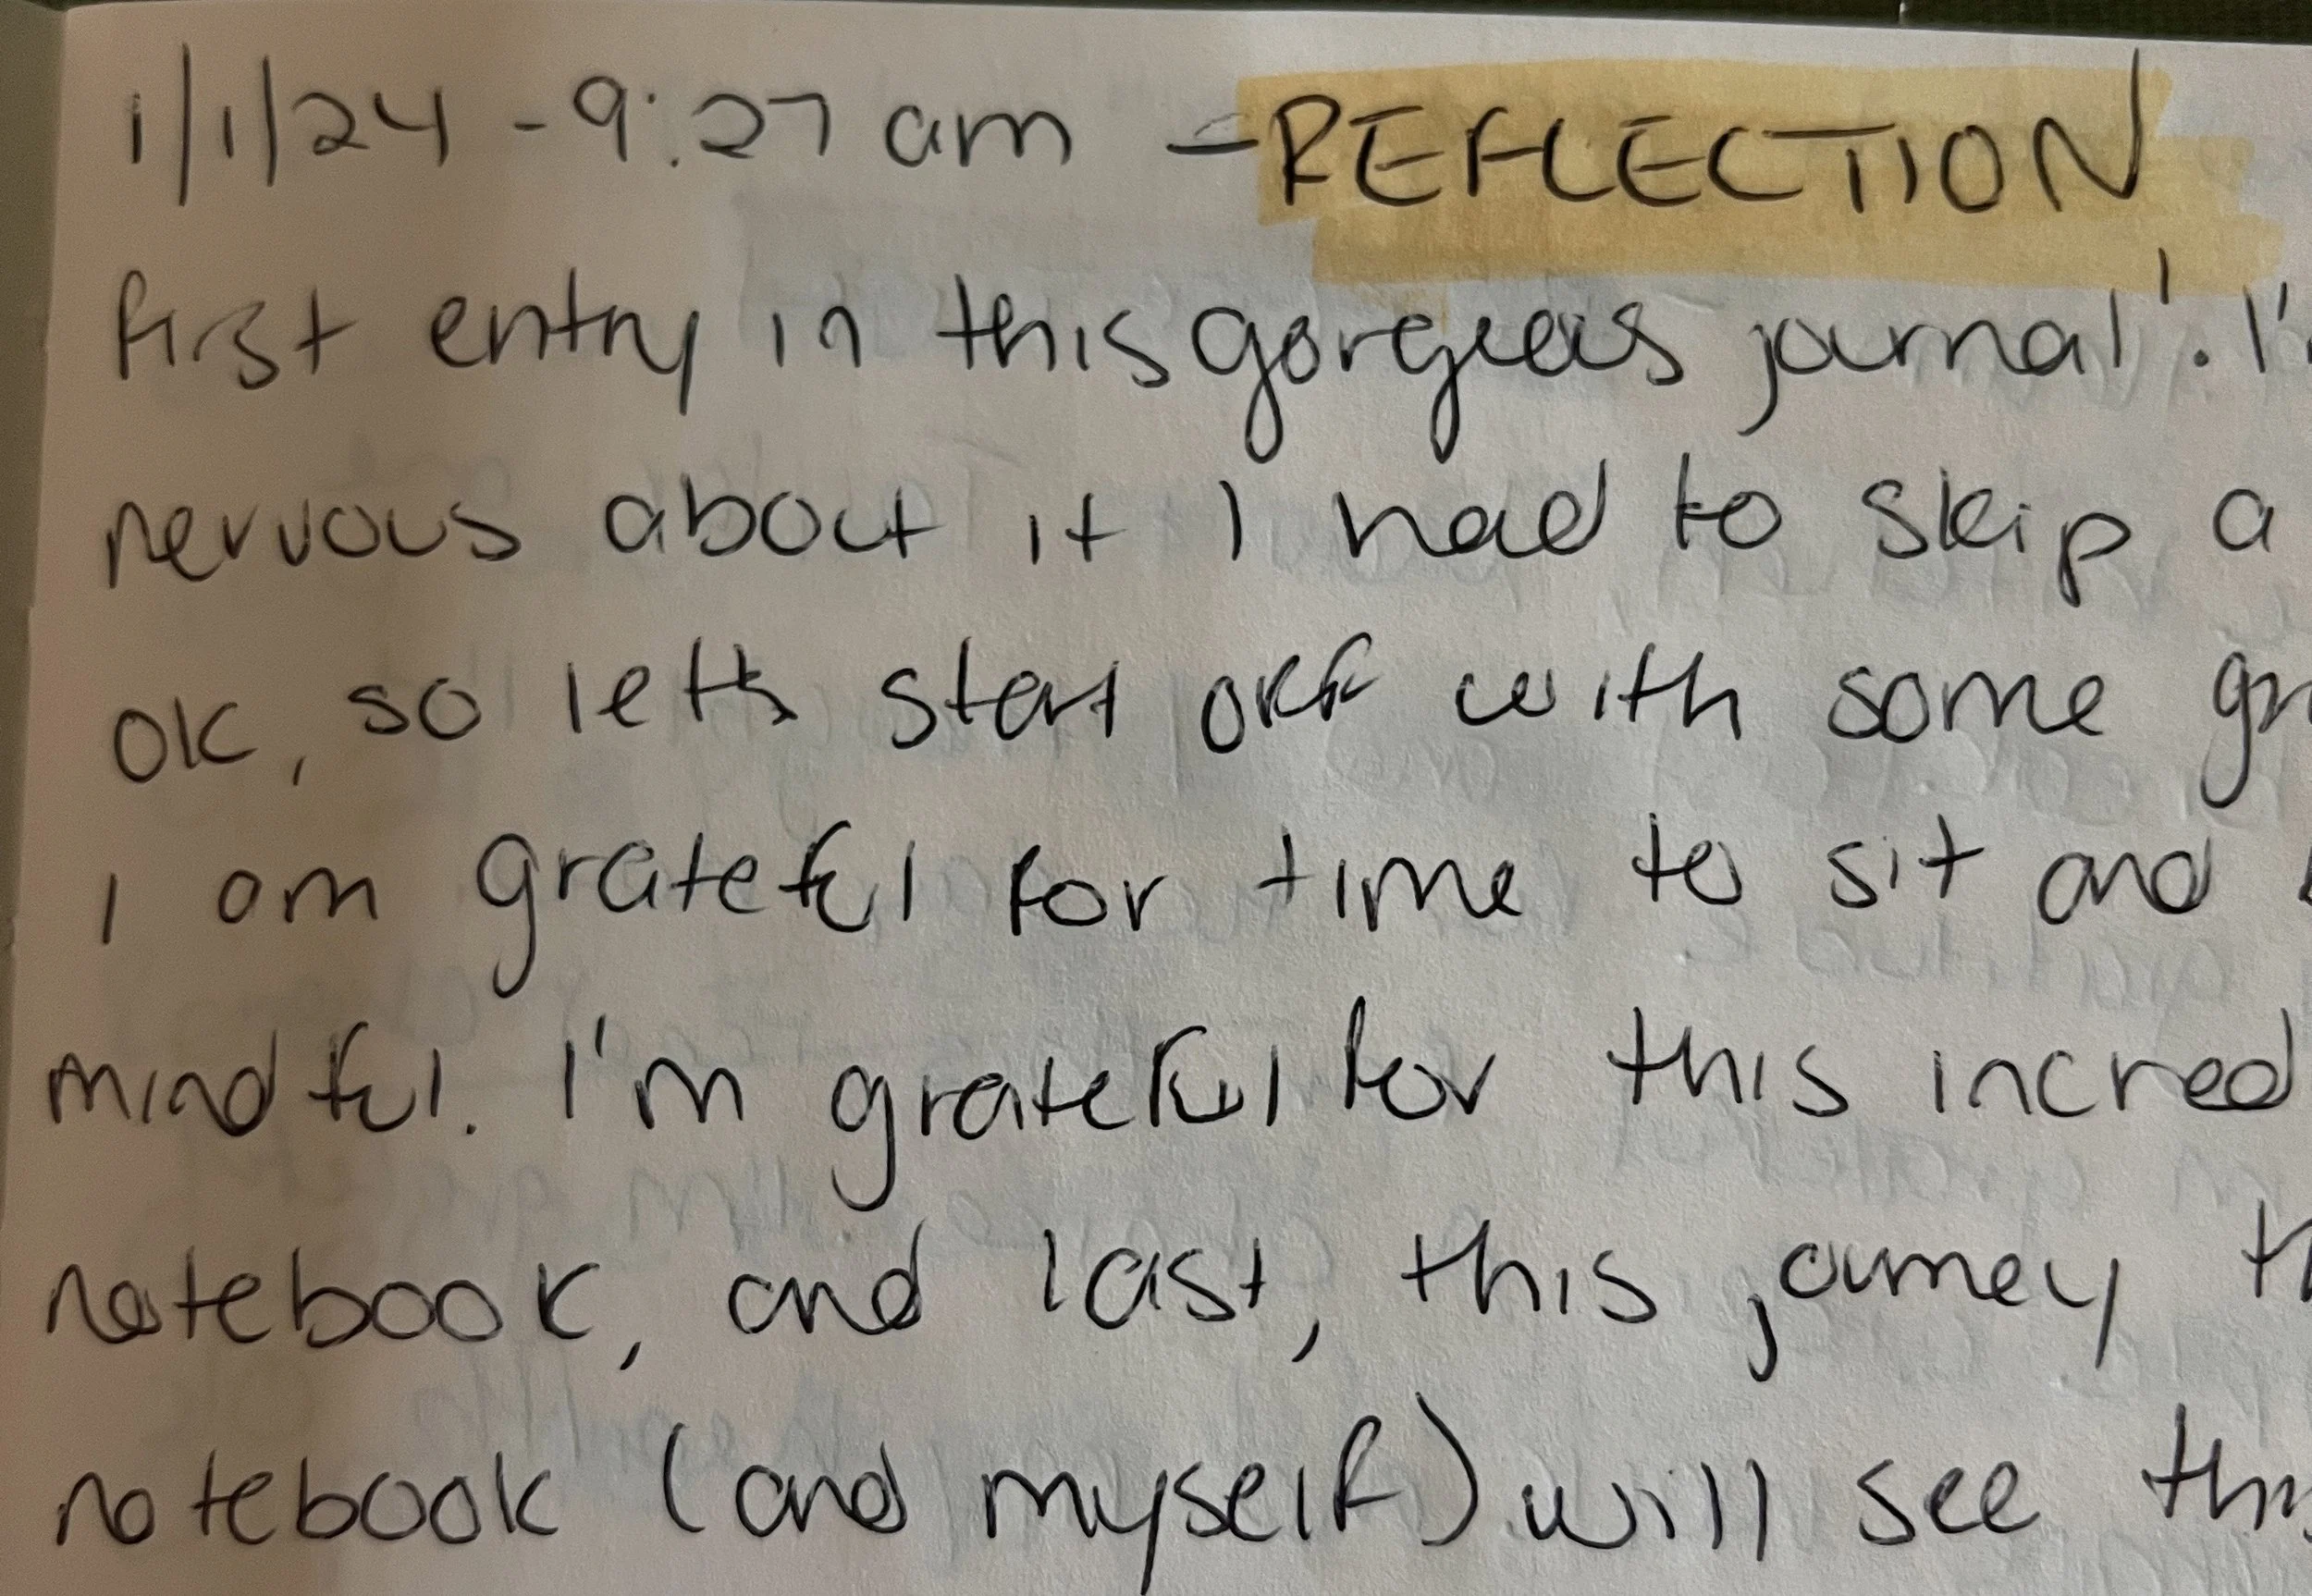 1/1/24 - 9:27 am - REFLECTION
first entry in this gorgeous journal! I'
nervous about it I had to skip a
ok, so let's start off with some gr
I am grateful for time to sit and
mindful. I'm grateful for this incred
notebook, and last, this journey th
notebook (and myself) will see this